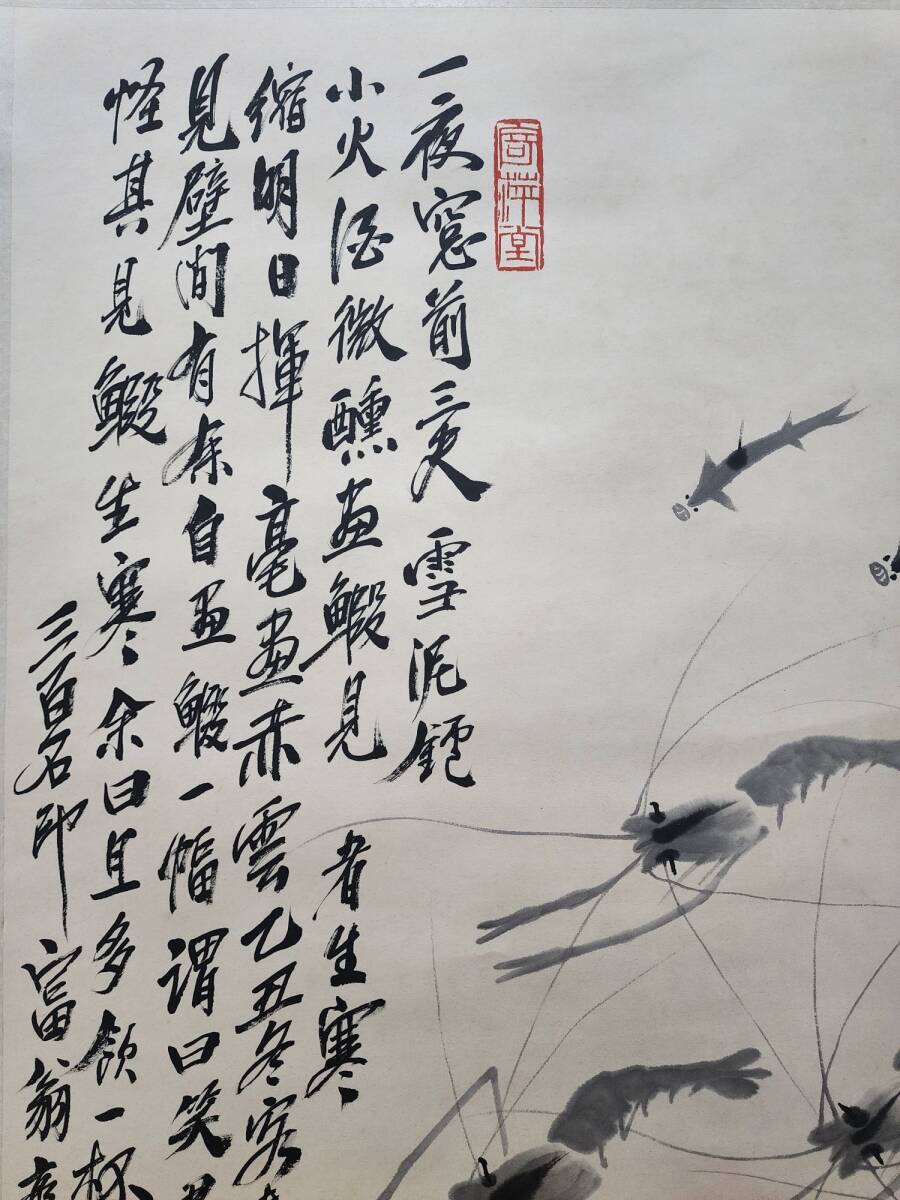 寄萍堂
一夜窓前三更雪泥鑪
小火酒微醺畫鰕見者生寒
縮明日揮毫畫赤雲乙丑冬客
見壁間有余自畫鰕一幅謂曰笑
怪其見鰕生寒余曰且多飲一杯
三百石印富翁